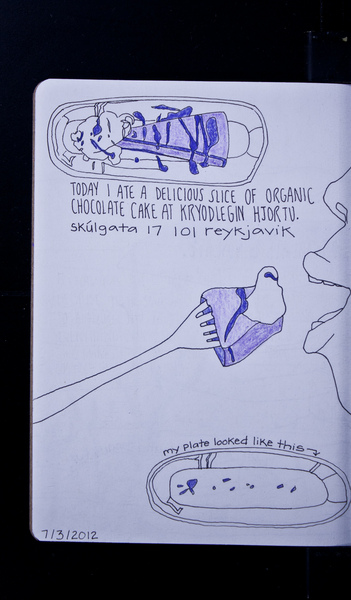 TODAY I ATE A DELICIOUS SLICE OF ORGANIC
CHOCOLATE CAKE AT KRYODLEGIN HJORTU.
skúlgata 17 101 reykjavik
my plate looked like this
7/3/2012